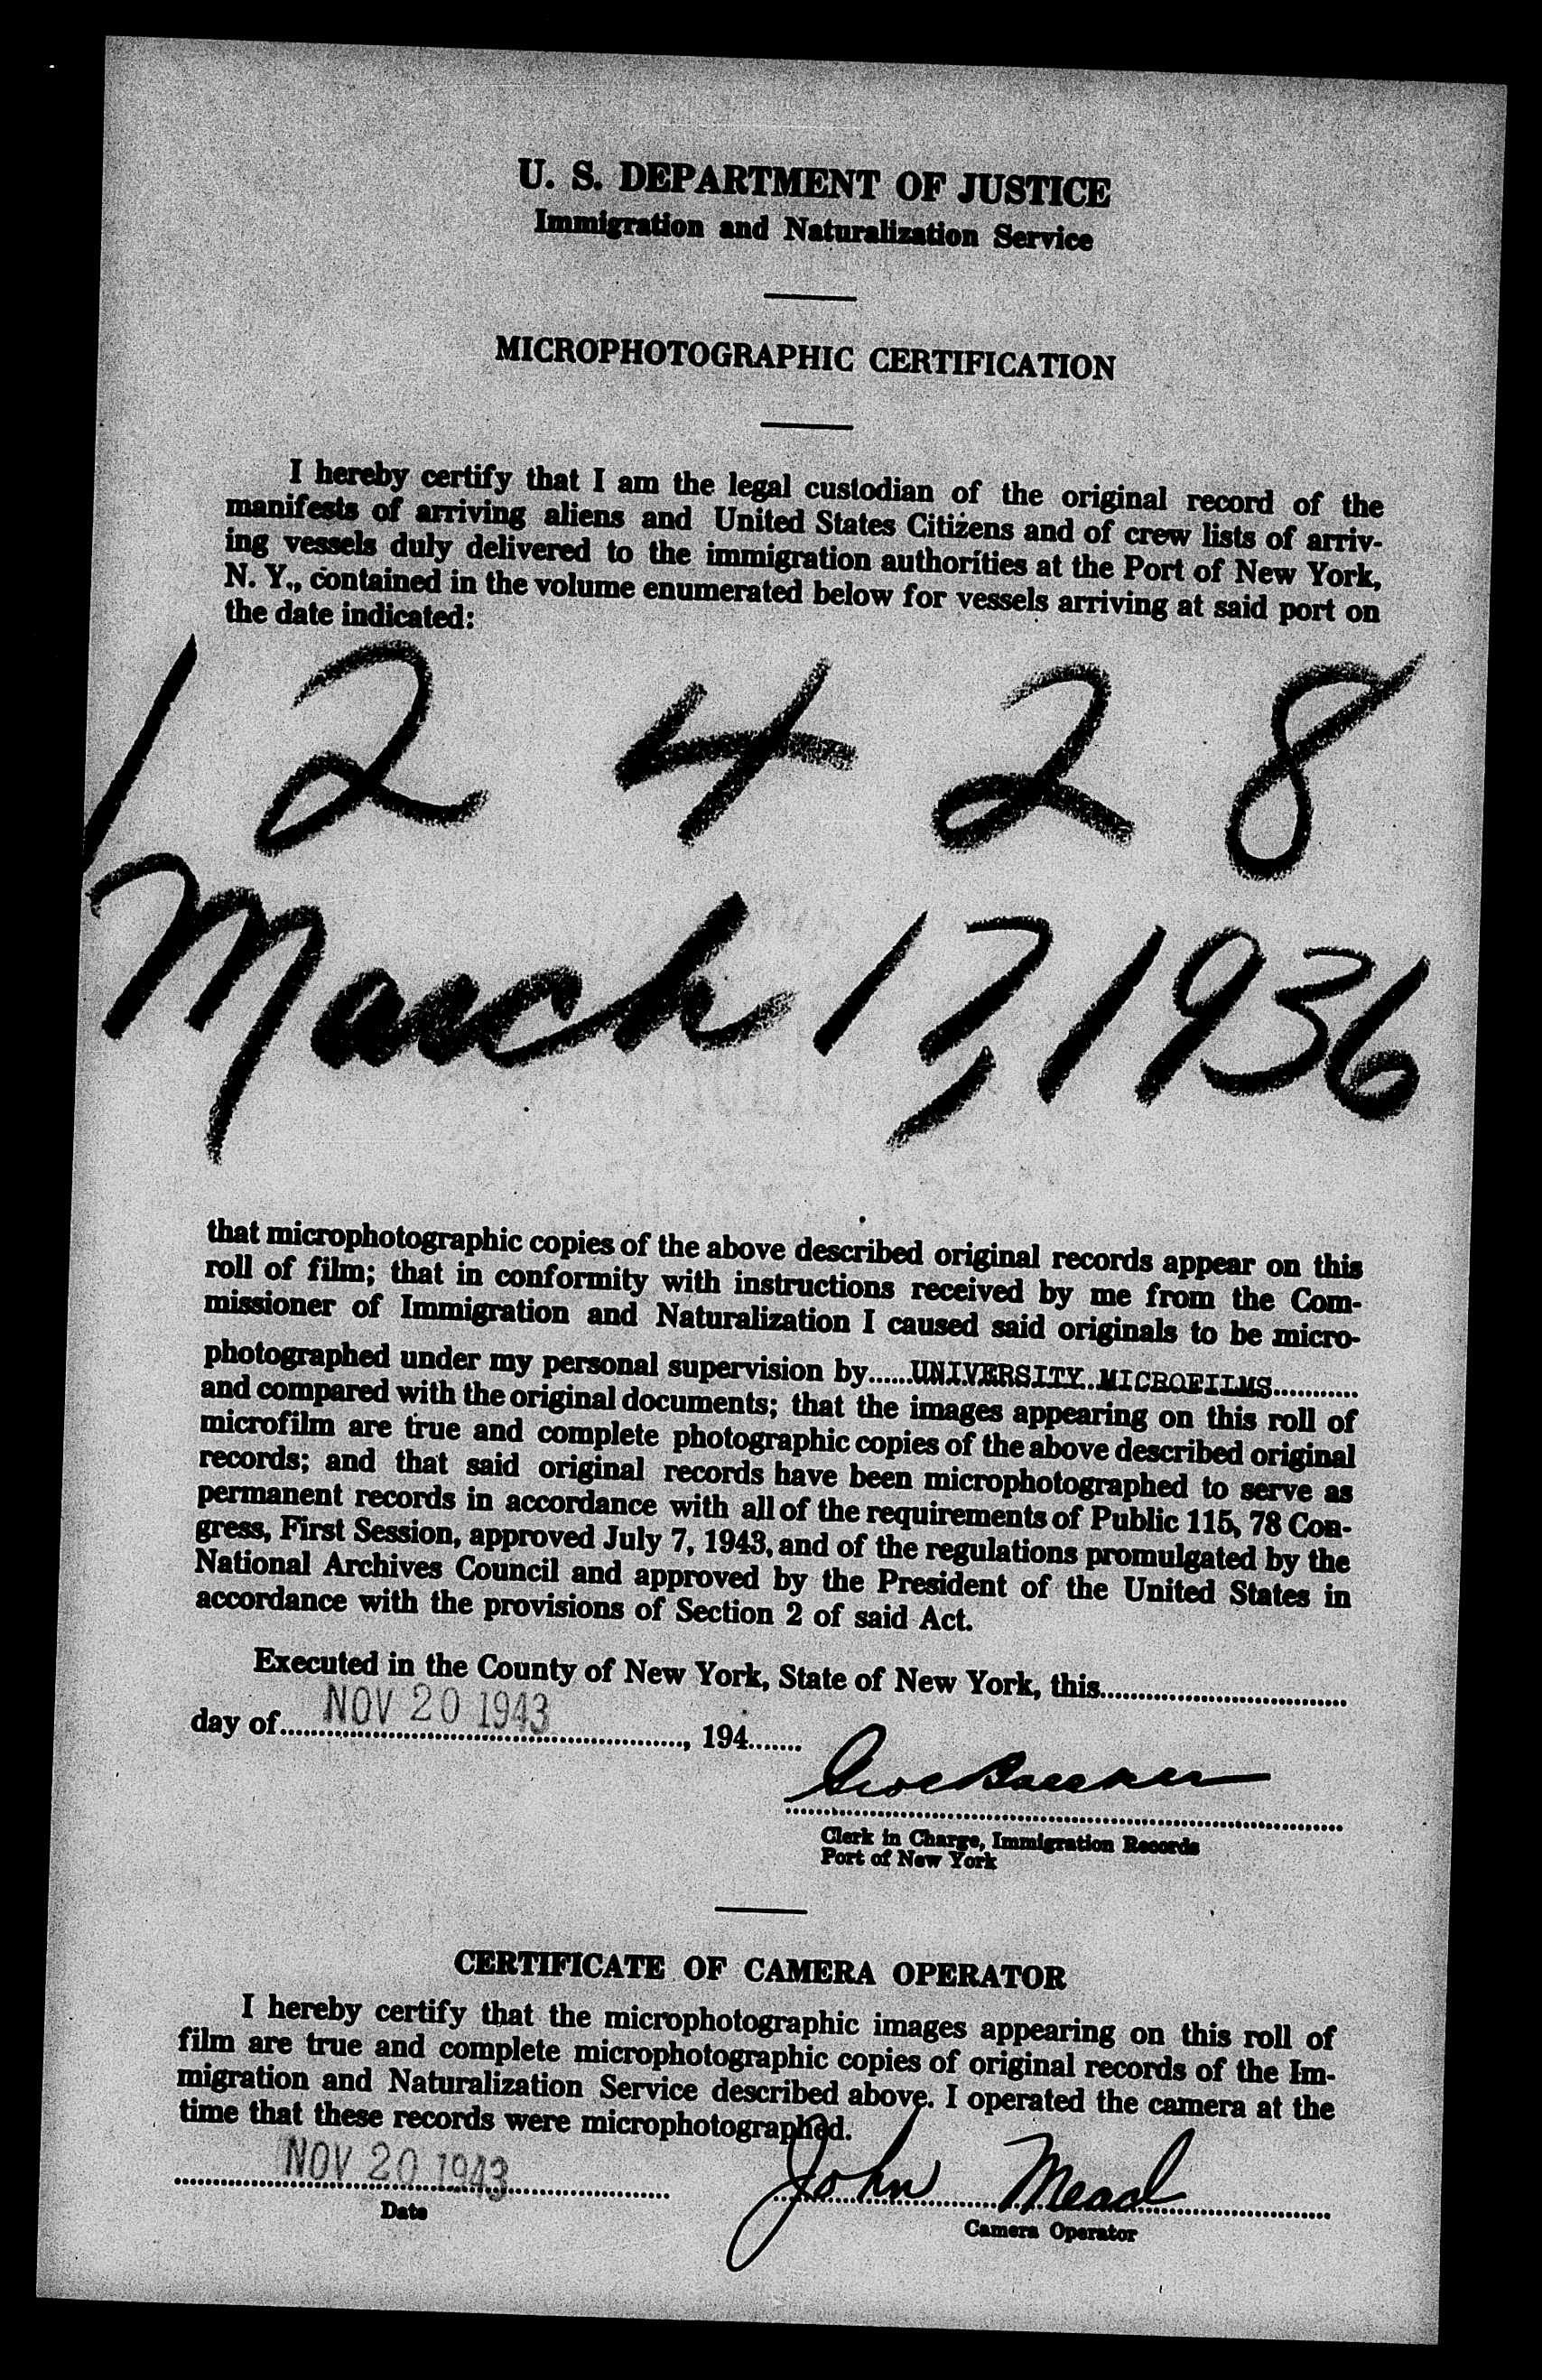 U. S. DEPARTMENT OF JUSTICE
Immigration and Naturalization Service
MICROPHOTOGRAPHIC CERTIFICATION
I hereby certify that I am the legal custodian of the original record of the
manifests of arriving aliens and United States Citizens and of crew lists of arriv-
ing vessels duly delivered to the immigration authorities at the Port of New York,
N. Y., contained in the volume enumerated below for vessels arriving at said port on
the date indicated:
12428
March 17, 1936
that microphotographic copies of the above described original records appear on this
roll of film; that in conformity with instructions received by me from the Com-
missioner of Immigration and Naturalization I caused said originals to be micro-
photographed under my personal supervision by......UNIVERSITY MICROFILMS...........
and compared with the original documents; that the images appearing on this roll of
microfilm are true and complete photographic copies of the above described original
records; and that said original records have been microphotographed to serve as
permanent records in accordance with all of the requirements of Public 115, 78 Con-
gress, First Session, approved July 7, 1943, and of the regulations promulgated by the
National Archives Council and approved by the President of the United States in
accordance with the provisions of Section 2 of said Act.
Executed in the County of New York, State of New York, this................................
day of NOV 20 1943, 194.......
Clerk in Charge, Immigration Records
Port of New York
CERTIFICATE OF CAMERA OPERATOR
I hereby certify that the microphotographic images appearing on this roll of
film are true and complete microphotographic copies of original records of the Im-
migration and Naturalization Service described above. I operated the camera at the
time that these records were microphotographed.
NOV 20 1943 John Mead
Date
Camera Operator